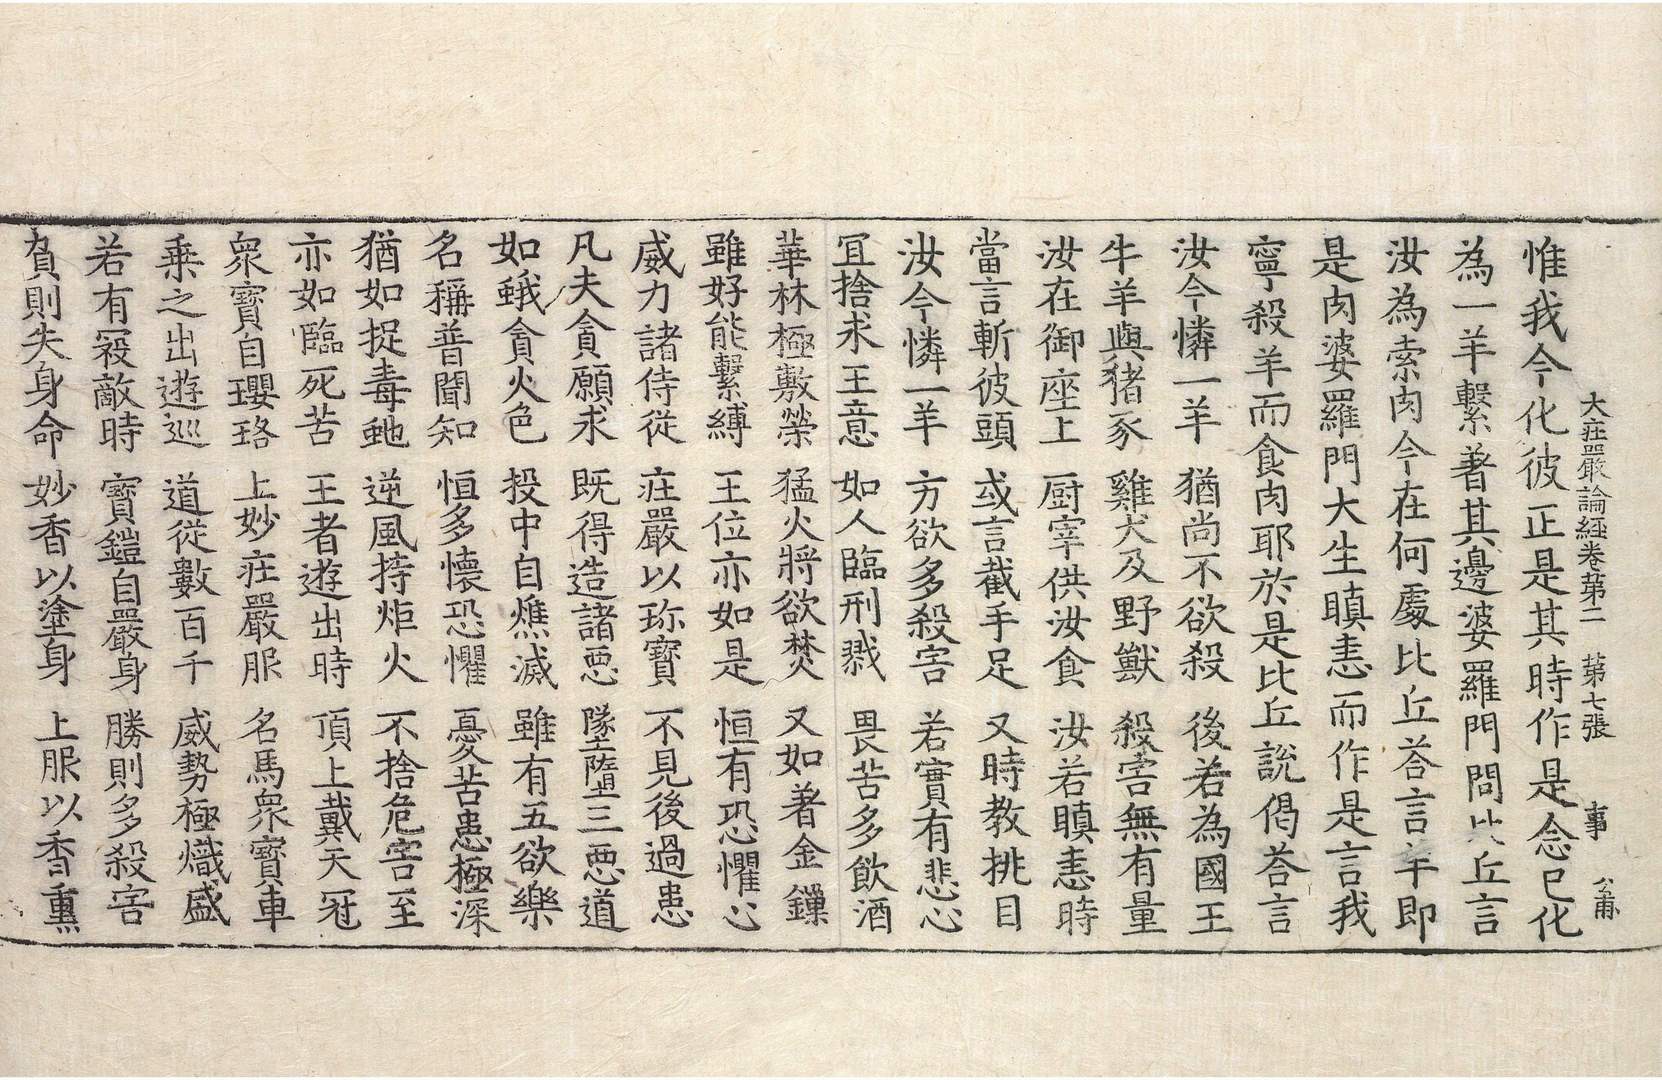 大莊嚴論經卷第二　第七張　事　公甫
惟我今化彼正是其時作是念已化
為一羊繫著其邊婆羅門問比丘言
汝為索肉今在何處比丘荅言羊即
是肉婆羅門大生瞋恚而作是言我
寧殺羊而食肉耶於是比丘說偈荅言
汝今憐一羊　猶尚不欲殺　後若為國王
牛羊與猪豕　雞犬及野獸　殺害無有量
汝在御座上　厨宰供汝食　汝若瞋恚時
當言斬彼頭　或言截手足　又時教挑目
汝今憐一羊　方欲多殺害　若實有悲心
冝捨求王意　如人臨刑戮　畏苦多飲酒
華林極敷榮　猛火將欲焚　又如著金鏁
雖好能繫縛　王位亦如是　恒有恐懼心
威力諸侍從　莊嚴以珎寶　不見後過患
凡夫貪願求　既得造諸惡　墜墮三惡道
如蛾貪火色　投中自燋滅　雖有五欲樂
名稱普聞知　恒多懷恐懼　憂苦患極深
猶如捉毒虵　逆風持炬火　不捨危害至
亦如臨死苦　王者遊出時　頂上戴天冠
眾寶自瓔珞　上妙莊嚴服　名馬眾寶車
乘之出遊巡　道從數百千　威勢極熾盛
若有寇敵時　寶鎧自嚴身　勝則多殺害
負則失身命　妙香以塗身　上服以香熏